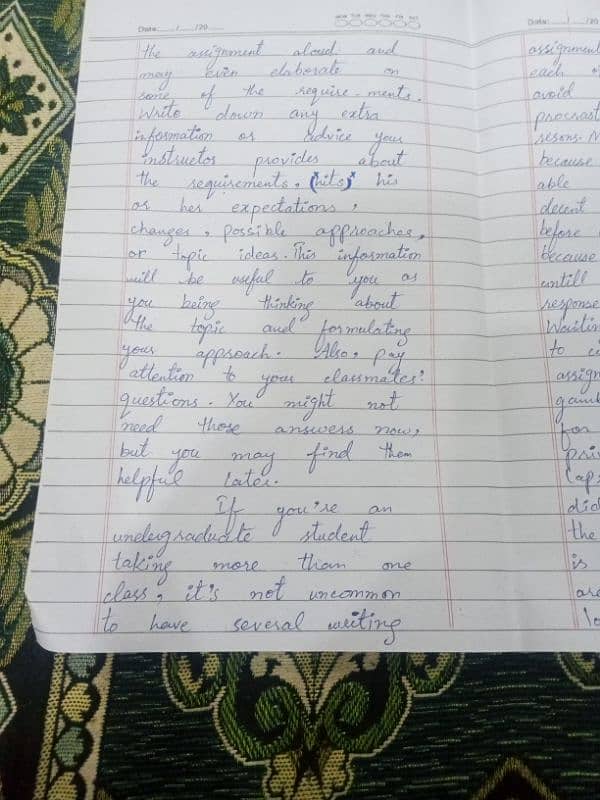 Date: __/__/20__
MON TUE WED THU FRI SAT
the assignment aloud and
may even elaborate on
some of the require-ments.
Write down any extra
information or advice your
instructor provides about
the requirements, (hits) his
or her expectations,
changes, possible approaches,
or topic ideas. This information
will be useful to you as
you being thinking about
the topic and formulating
your approach. Also, pay
attention to your classmates'
questions. You might not
need those answers now,
but you may find them
helpful later.
If you're an
undergraduate student
taking more than one
class, it's not uncommon
to have several writing
Date: __/__/20
assignment
each
avoid
procrast
resons.
because
able
decent
before
because
untill
response
Waitin
to
assign
gamb
for
pri
laps
did
the
is
are
lo